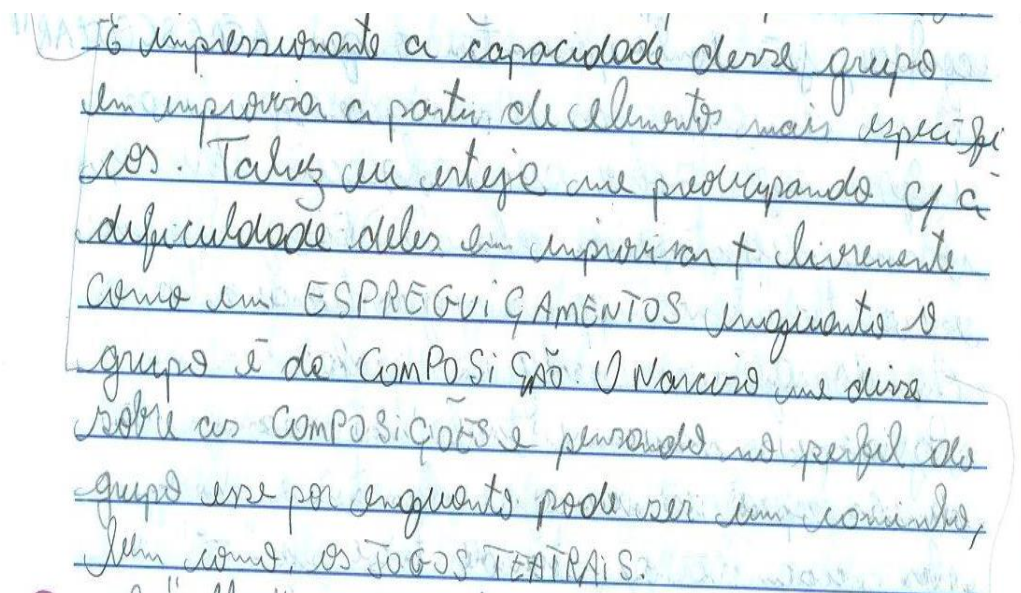 É impressionante a capacidade desse grupo
em improvisar a partir de elementos mais especifi
cos. Talvez eu esteja me preocupando c/ a
dificuldade deles em improvisar + livremente
como em ESPREGUIÇAMENTOS enquanto o
grupo é de COMPOSIÇÃO. O Narciso me disse
sobre as COMPOSIÇÕES e pensando no perfil do
grupo esse por enquanto pode ser um caminho,
bem como, os JOGOS TEATRAIS.